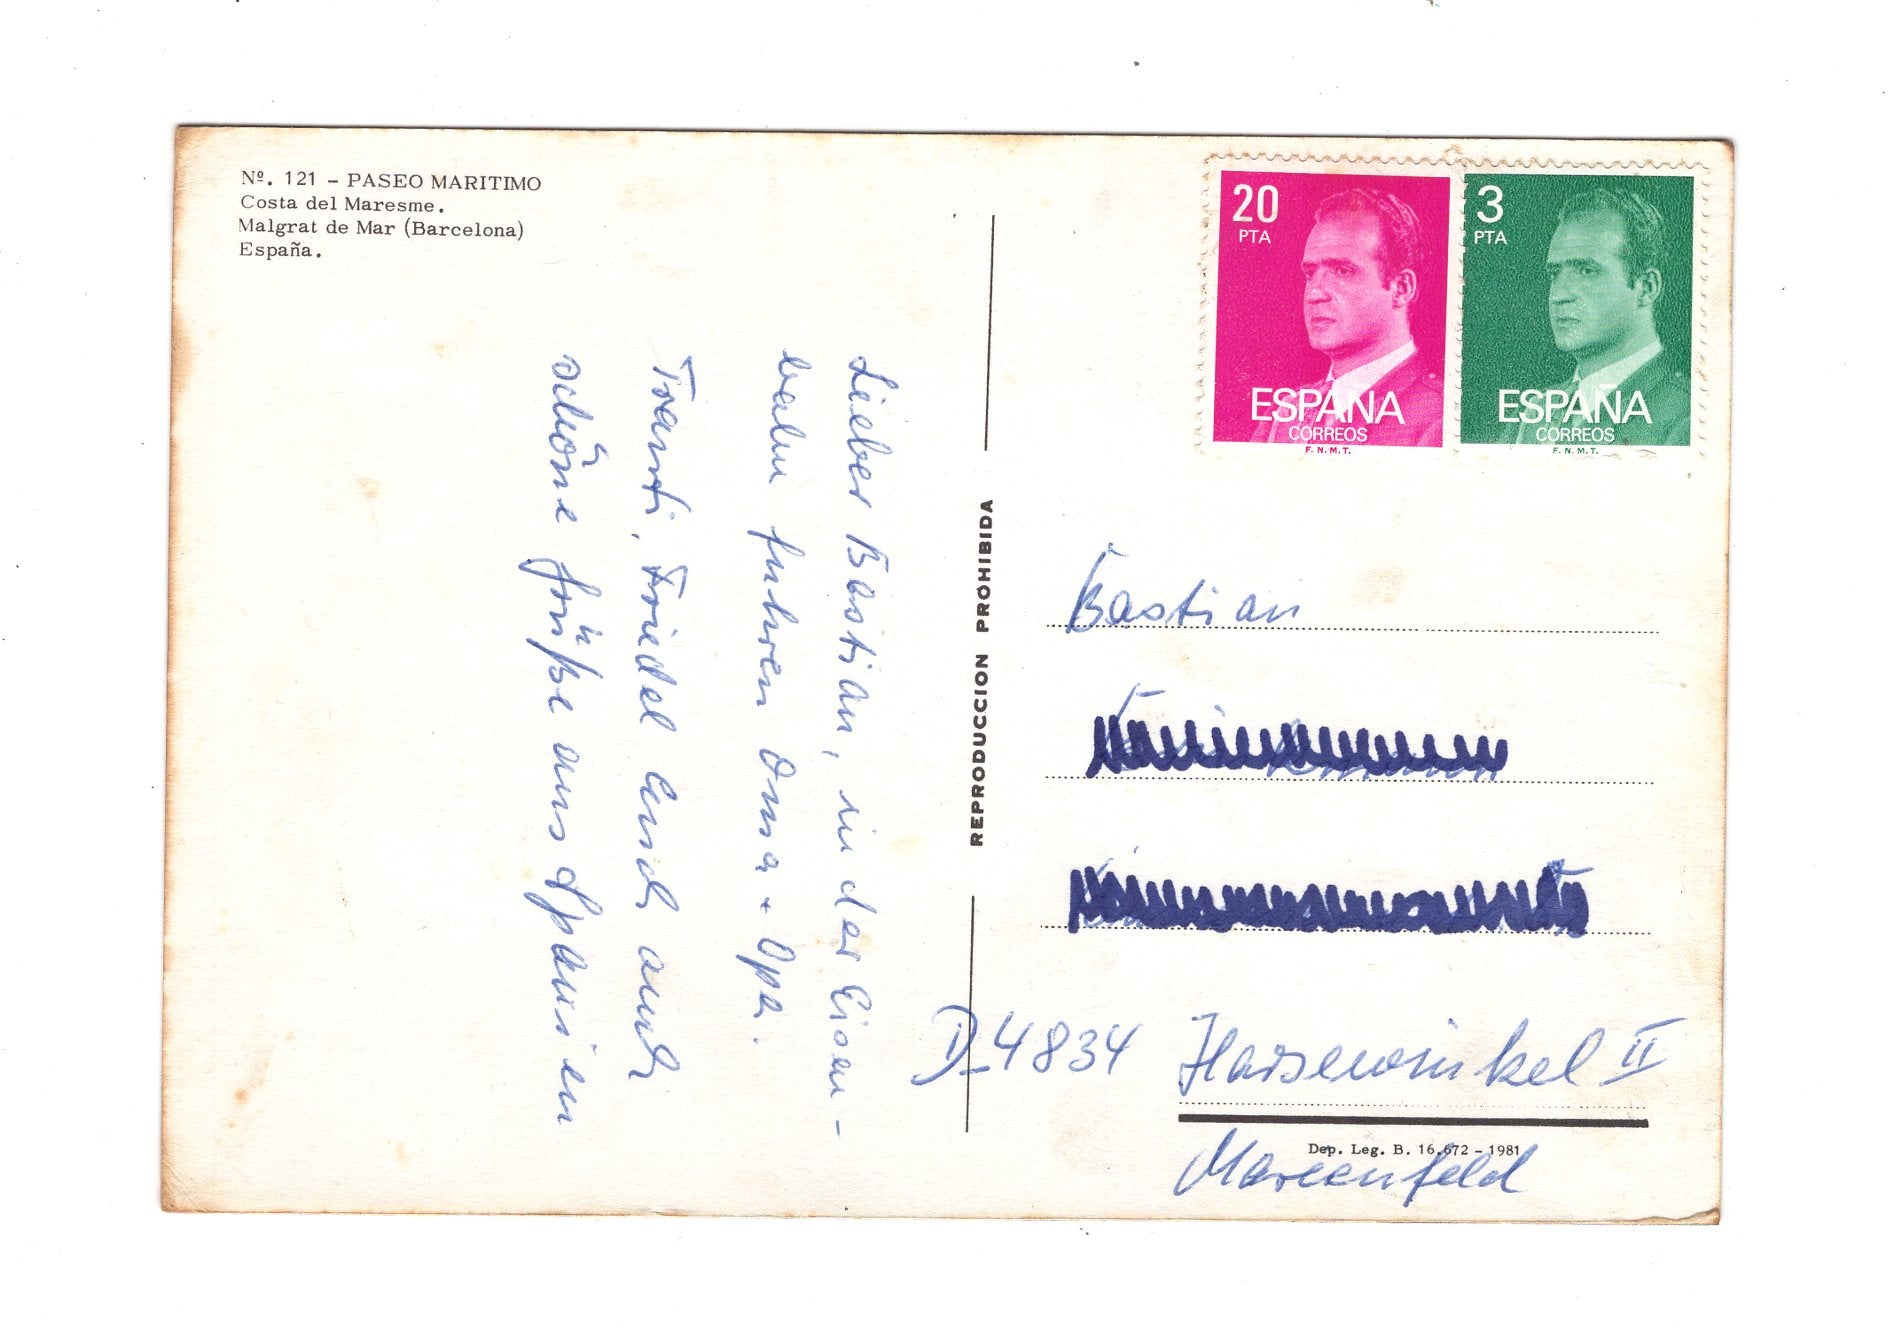 Nº. 121 – PASEO MARITIMO
Costa del Maresme.
Malgrat de Mar (Barcelona)
España.
Lieber Bastian, in der Eisen-
bahn fuhren Oma + Opa.
Franti, Friedel Euch auch
schöne Grüße aus Spanien
REPRODUCCION PROHIBIDA
20
PTA
ESPAÑA
CORREOS
F.N.M.T.
3
PTA
ESPAÑA
CORREOS
F.N.M.T.
Bastian
D-4834 Harsewinkel II
Dep. Leg. B. 16.672 – 1981
Marienfeld